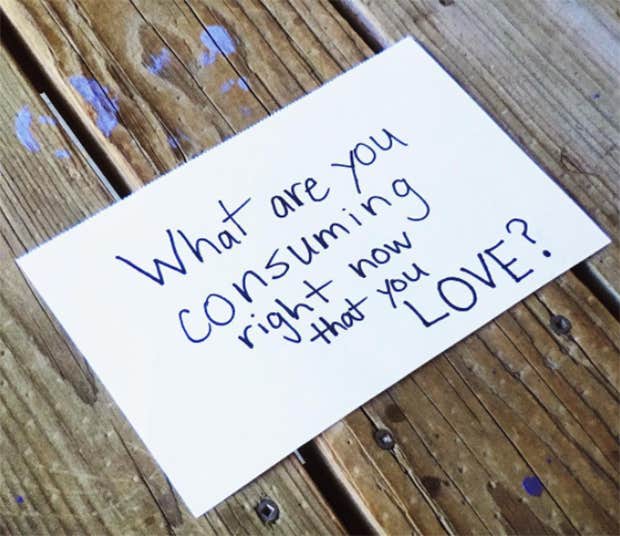 What are you
consuming
right now
that you
LOVE?